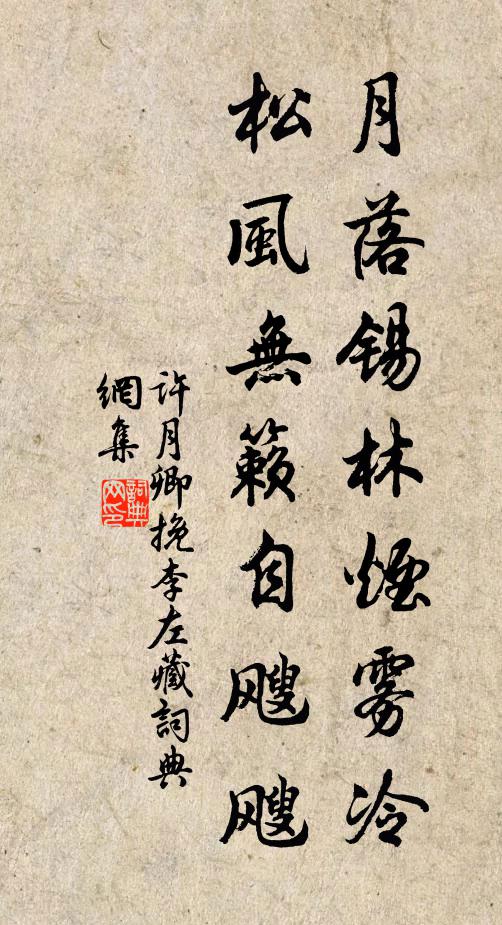 月落锡林煙雾冷
松風無籟自飕飕
許月卿挽李左藏詞典
網集
詞典
网印